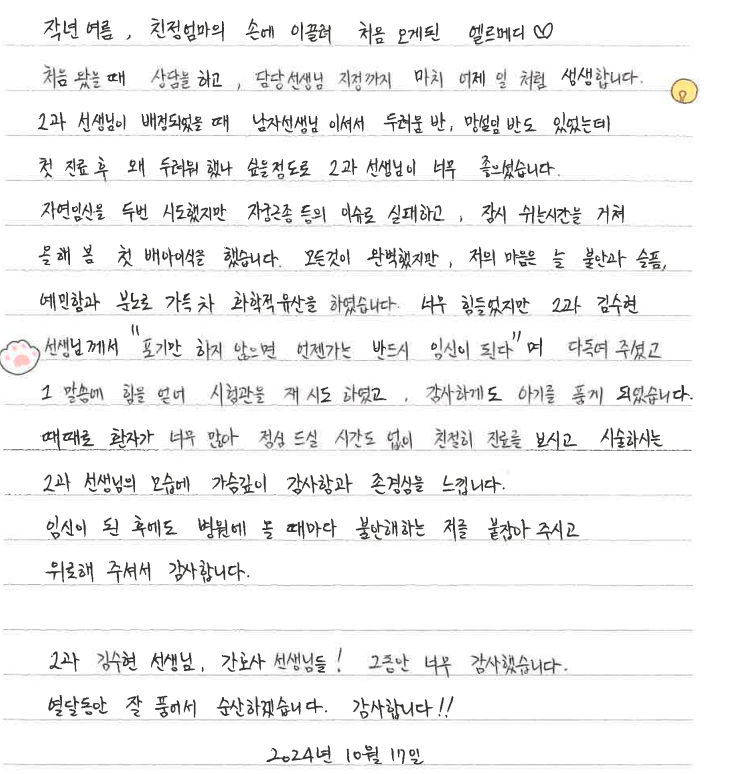 작년 여름, 친정엄마의 손에 이끌려 처음 오게된 엘르메디♡
처음 왔을 때 상담을 하고, 담당선생님 지정까지 마치 어제 일 처럼 생생합니다.
2과 선생님이 배정되었을 때 남자선생님 이셔서 두려움 반, 망설임 반도 있었는데
첫 진료 후 왜 두려워 했나 싶을정도로 2과 선생님이 너무 좋으셨습니다.
자연임신을 두번 시도했지만 자궁근종 등의 이슈로 실패하고, 잠시 쉬는시간을 거쳐
올해 봄 첫 배아이식을 했습니다. 모든것이 완벽했지만, 저의 마음은 늘 불안과 슬픔,
예민함과 분노로 가득 차 화학적유산을 하였습니다. 너무 힘들었지만 2과 김수현
선생님께서 "포기만 하지 않으면 언젠가는 반드시 임신이 된다"며 다독여 주셨고
그 말씀에 힘을 얻어 시험관을 재 시도 하였고, 감사하게도 아기를 품게 되었습니다.
때때로 환자가 너무 많아 점심 드실 시간도 없이 친절히 진료를 보시고 시술하시는
2과 선생님의 모습에 가슴깊이 감사함과 존경심을 느낍니다.
임신이 된 후에도 병원에 올 때마다 불안해하는 저를 붙잡아 주시고
위로해 주셔서 감사합니다.
2과 김수현 선생님, 간호사 선생님들! 그동안 너무 감사했습니다.
열달동안 잘 품어서 순산하겠습니다. 감사합니다!!
2024년 10월 17일